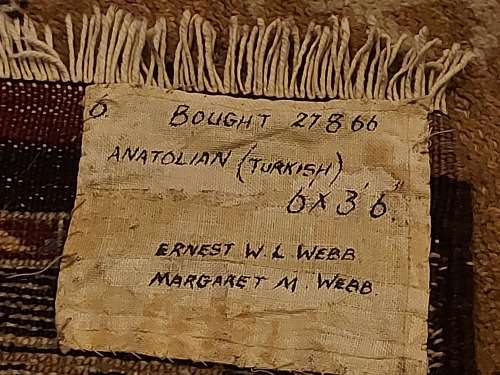 6. BOUGHT 27 8 66
ANATOLIAN (TURKISH)
6 X 3' 6".
ERNEST W. L. WEBB.
MARGARET M. WEBB.